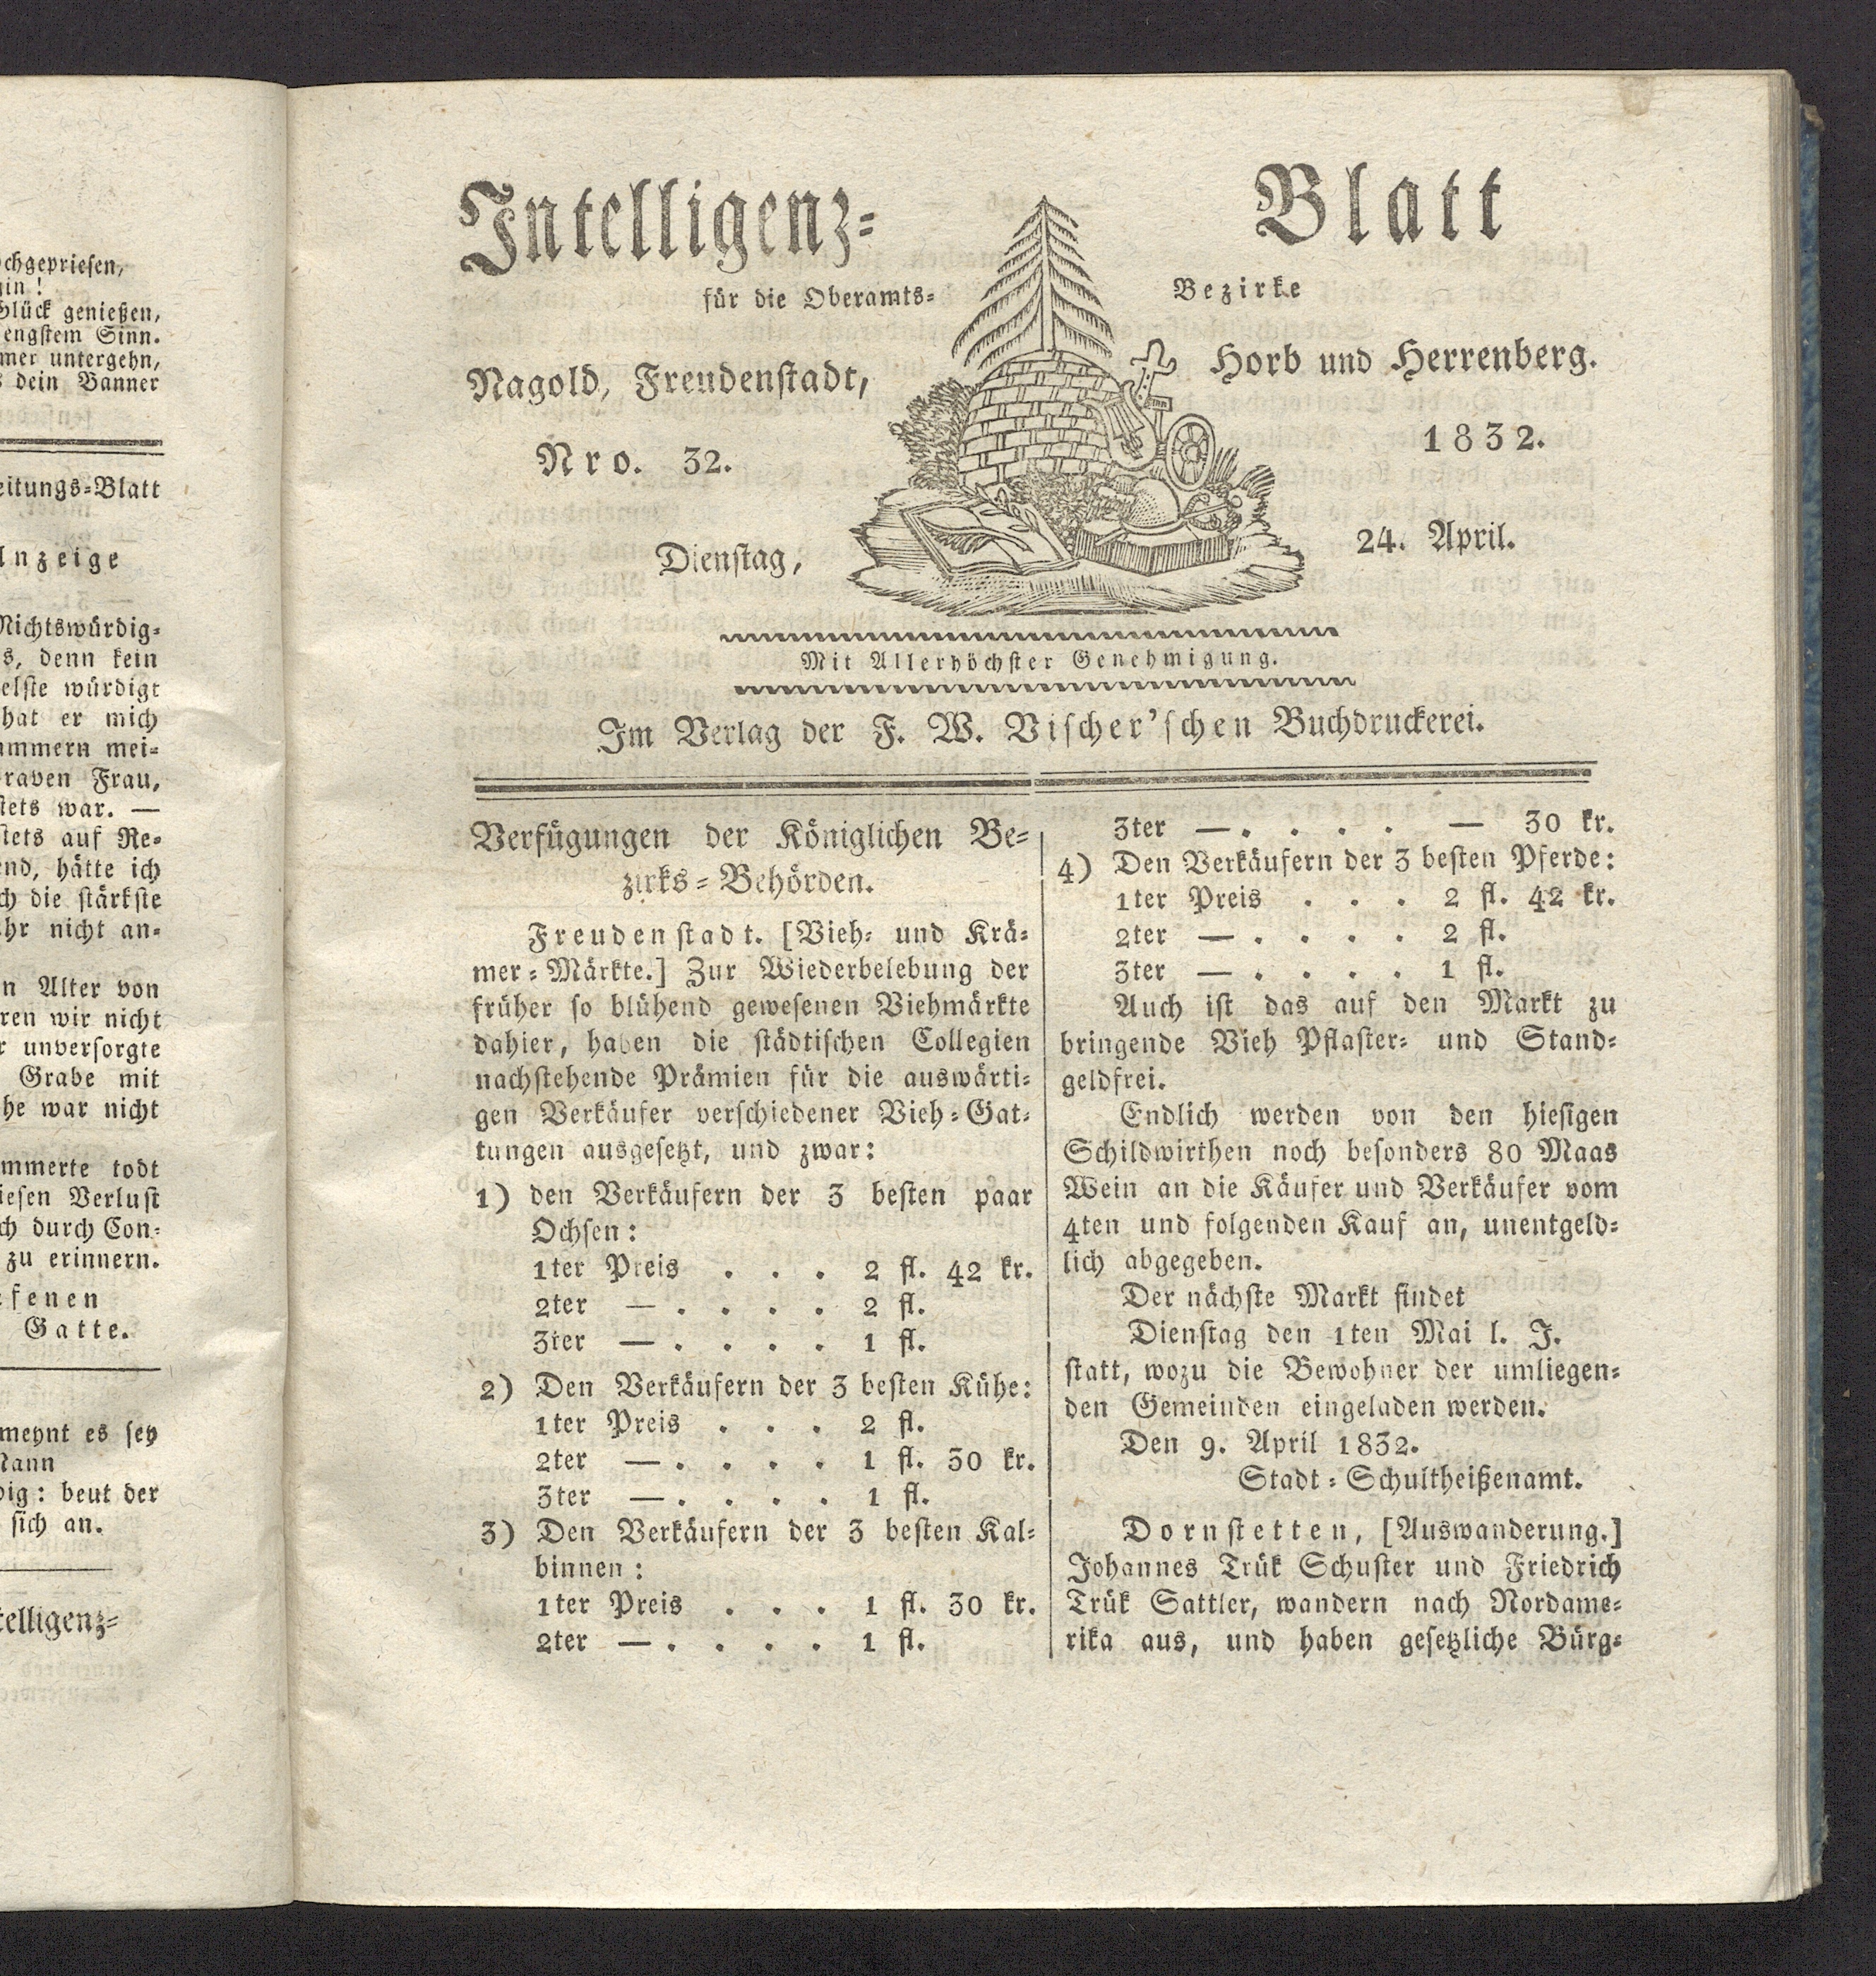 chgepriesen,
in!
Glück genießen,
engstem Sinn.
mer untergehn,
dein Banner
eitungs-Blatt
nzeige
Nichtswürdig-
s, denn kein
elste würdigt
hat er mich
ammern mei-
raven Frau,
tets war. —
stets auf Re-
end, hätte ich
ch die stärkste
hr nicht an-
n Alter von
ren wir nicht
r unversorgte
Grabe mit
he war nicht
mmerte todt
iesen Verlust
ch durch Con-
zu erinnern.
fenen
Gatte.
meynt es sey
Mann
dig: beut der
sich an.
telligenz-
Intelligenz- Blatt
für die Oberamts- Bezirke
Nagold, Freudenstadt, Horb und Herrenberg.
Nro. 32. 1832.
Dienstag, 24. April.
Mit Allerhöchster Genehmigung.
Im Verlag der F. W. Vischer'schen Buchdruckerei.
Verfügungen der Königlichen Be-
zirks-Behörden.
Freudenstadt. [Vieh- und Krä-
mer-Märkte.] Zur Wiederbelebung der
früher so blühend gewesenen Viehmärkte
dahier, haben die städtischen Collegien
nachstehende Prämien für die auswärti-
gen Verkäufer verschiedener Vieh-Gat-
tungen ausgesetzt, und zwar:
1) den Verkäufern der 3 besten paar
Ochsen:
1ter Preis . . . 2 fl. 42 kr.
2ter — . . . . 2 fl.
3ter — . . . . 1 fl.
2) Den Verkäufern der 3 besten Kühe:
1ter Preis . . . 2 fl.
2ter — . . . . 1 fl. 30 kr.
3ter — . . . . 1 fl.
3) Den Verkäufern der 3 besten Kal-
binnen:
1ter Preis . . . 1 fl. 30 kr.
2ter — . . . . 1 fl.
3ter — . . . . — 30 kr.
4) Den Verkäufern der 3 besten Pferde:
1ter Preis . . . 2 fl. 42 kr.
2ter — . . . . 2 fl.
3ter — . . . . 1 fl.
Auch ist das auf den Markt zu
bringende Vieh Pflaster- und Stand-
geldfrei.
Endlich werden von den hiesigen
Schildwirthen noch besonders 80 Maas
Wein an die Käufer und Verkäufer vom
4ten und folgenden Kauf an, unentgeld-
lich abgegeben.
Der nächste Markt findet
Dienstag den 1ten Mai l. J.
statt, wozu die Bewohner der umliegen-
den Gemeinden eingeladen werden.
Den 9. April 1832.
Stadt-Schultheißenamt.
Dornstetten, [Auswanderung.]
Johannes Trük Schuster und Friedrich
Trük Sattler, wandern nach Nordame-
rika aus, und haben gesetzliche Bürg-